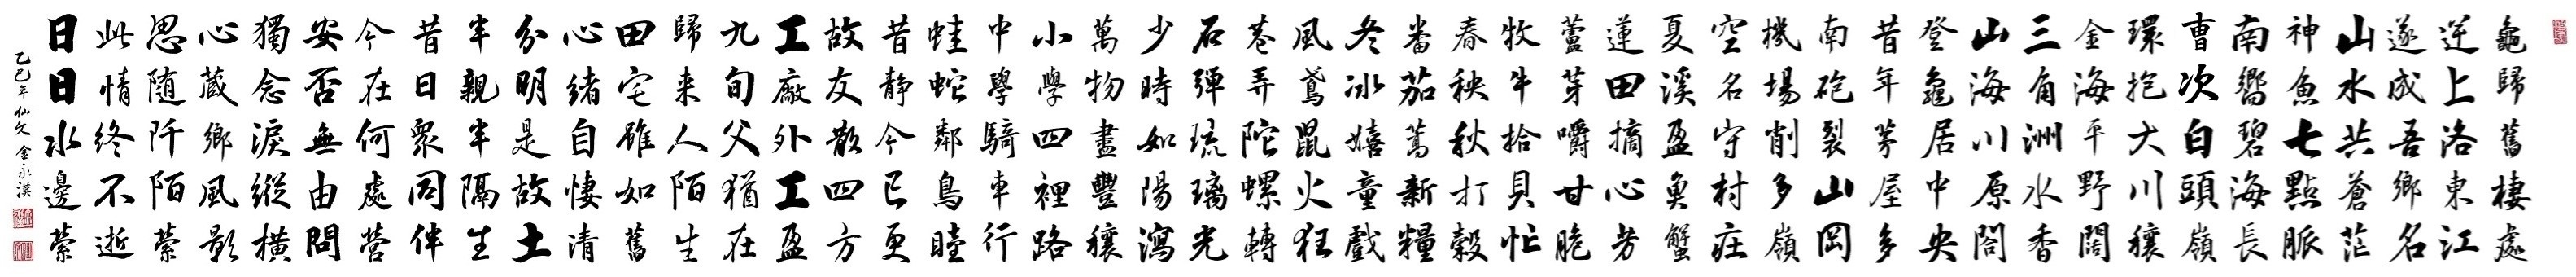 龜歸舊棲處
逆上洛東江
遂成吾鄉名
山水共蒼茫
神魚七點脈
南嚮碧海長
曹次白頭嶺
環抱大川穰
金海平野闊
三角洲水香
山海川原閤
登龜居中央
昔年茅屋多
南砲裂山岡
機場削多嶺
空名守村莊
夏溪盈魚蟹
蓮田摘心芳
蘆芽嚼甘脆
牧牛拾貝忙
春秧秋打穀
番茄蒿新糧
冬冰嬉童戲
風鳶鼠火狂
巷弄陀螺轉
石彈琉璃光
少時如陽瀉
萬物盡豐穰
小學四裡路
中學騎車行
蛙蛇鄰鳥睦
昔靜今已更
故友散四方
工廠外工盈
九旬父猶在
歸来人陌生
田宅雖如舊
心緒自悽清
分明是故土
半親半隔生
昔日眾同伴
今在何處營
安否無由問
獨念淚縱橫
心蔵鄉風影
思随阡陌縈
此情終不逝
日日水邊縈
乙巳年 仙父 金永漢